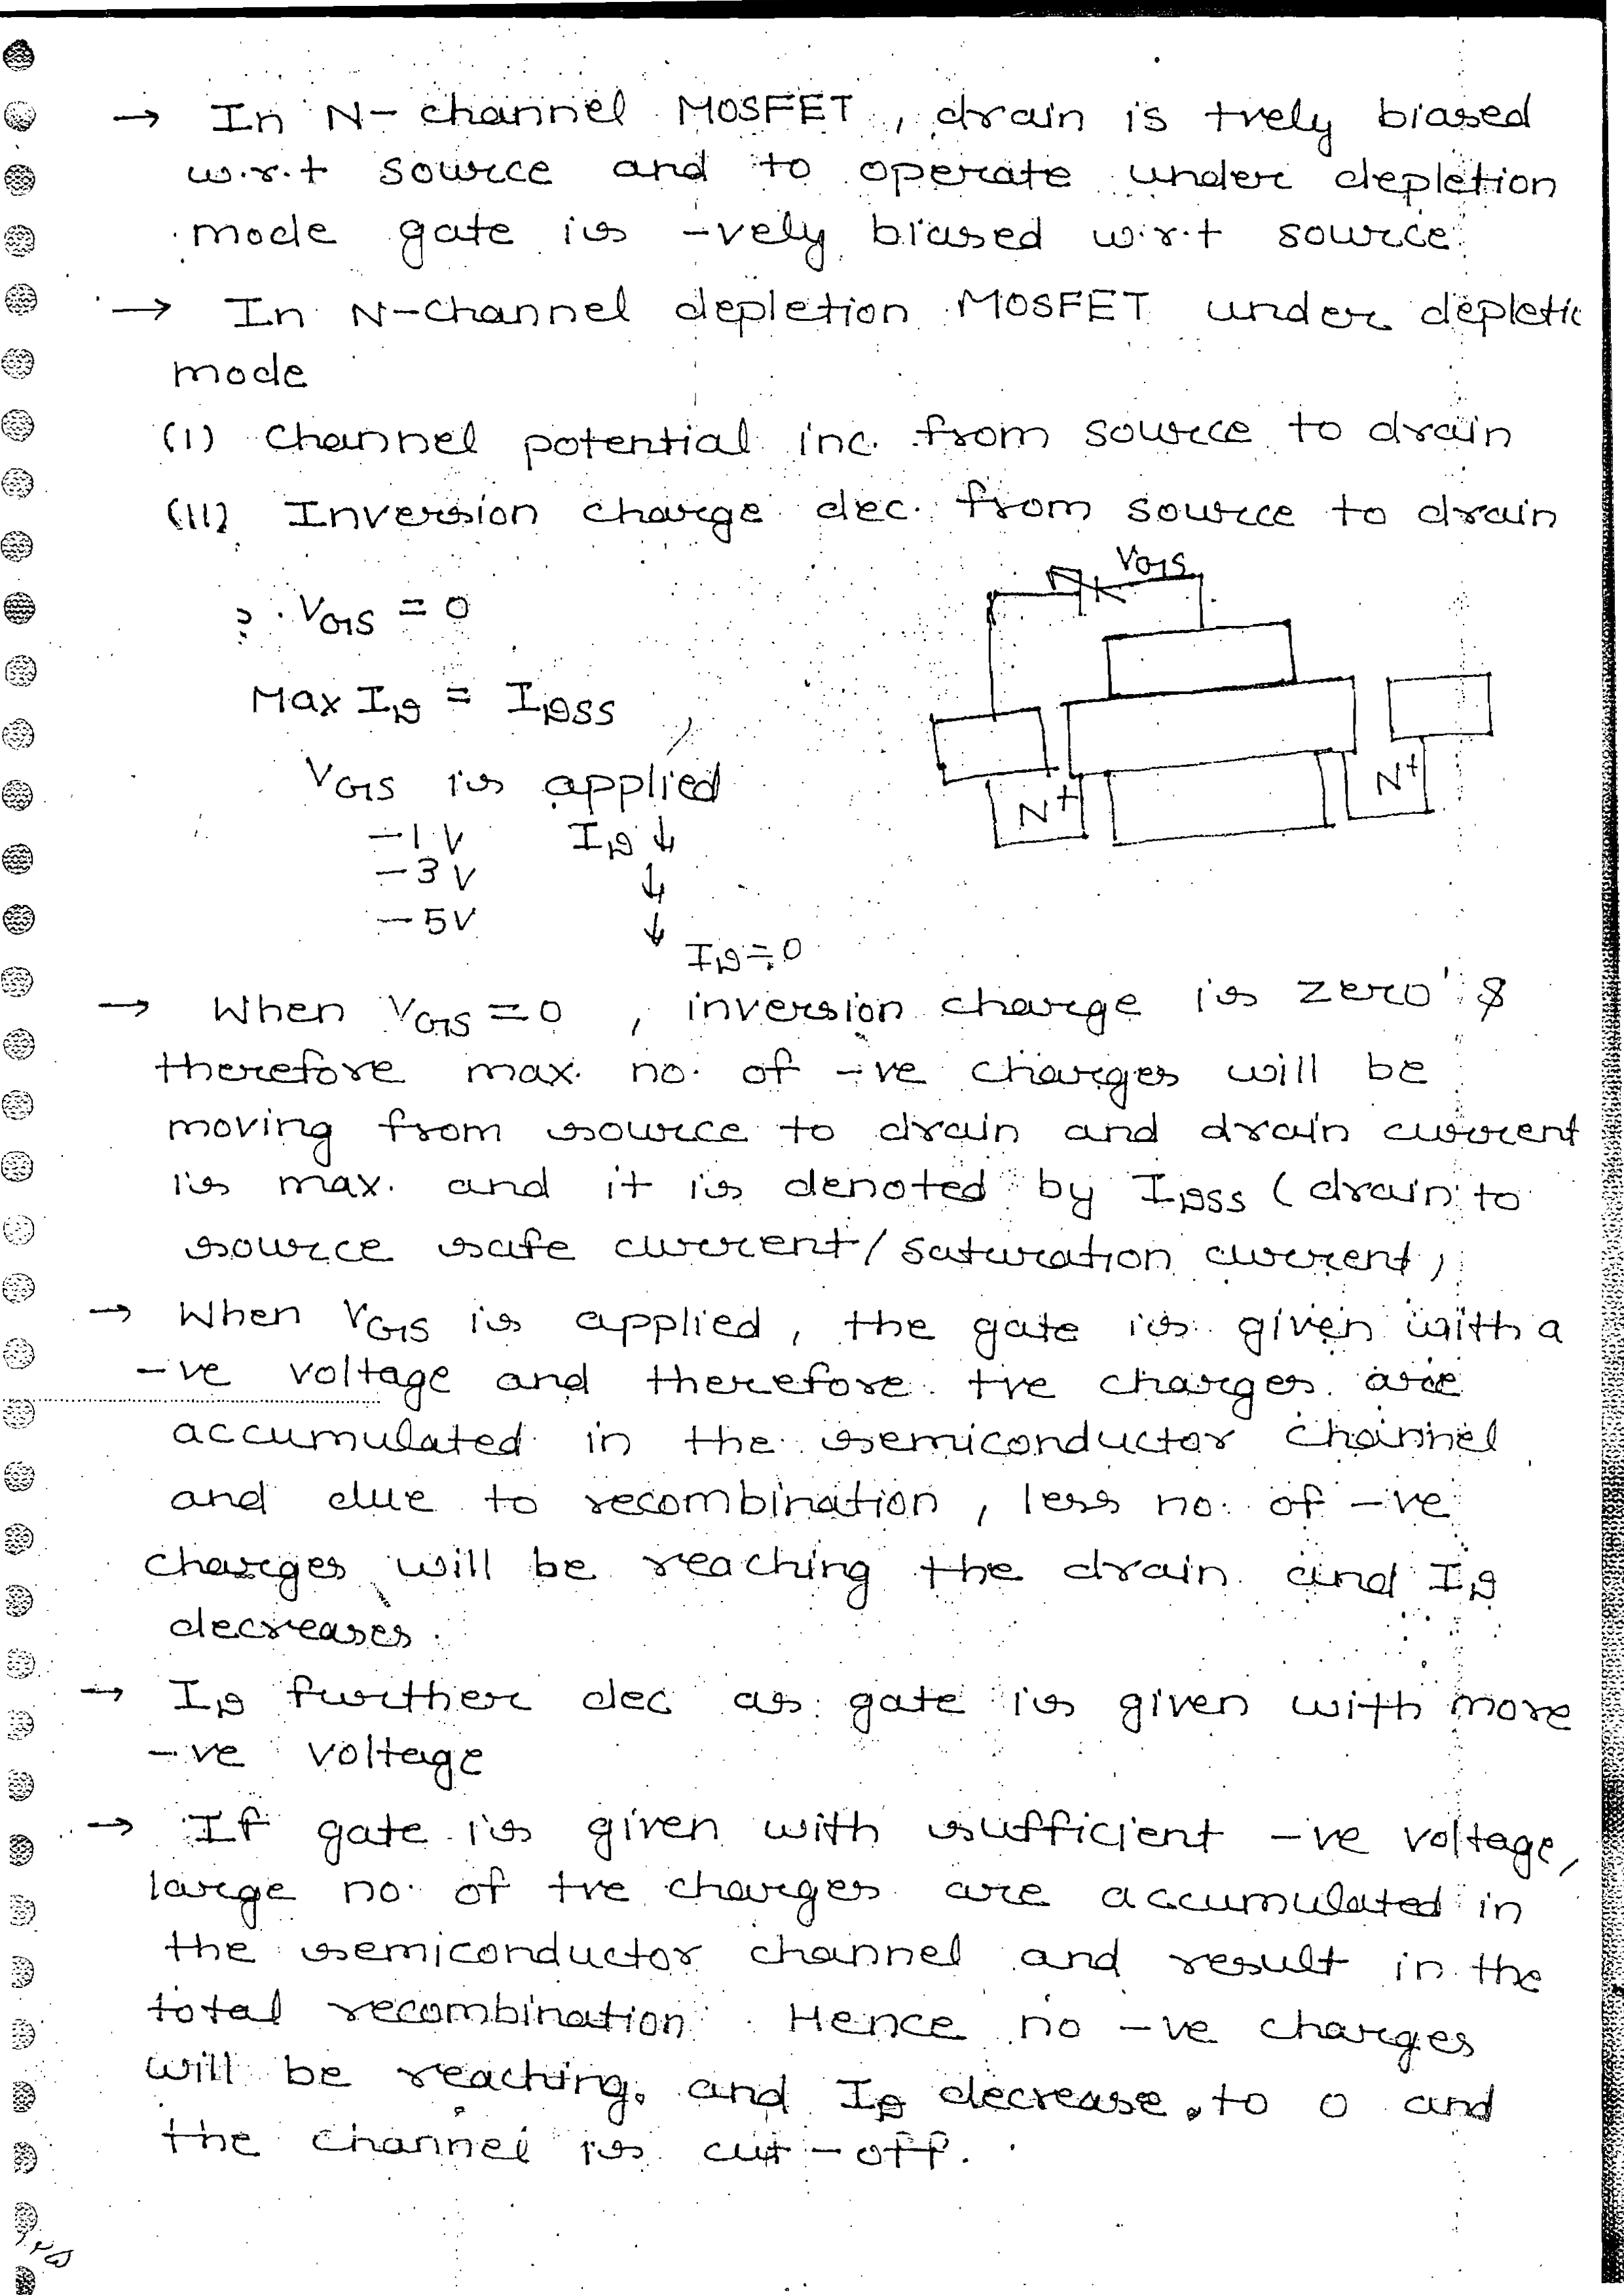 → In N-channel MOSFET, drain is +vely biased
w.r.t source and to operate under depletion
mode gate is -vely biased w.r.t source.
→ In N-channel depletion MOSFET under depletic
mode
(I) Channel potential inc. from source to drain
(II) Inversion charge dec. from source to drain
VGS
? VGS = 0
Max ID = IDSS
VGS is applied
N+ N+
-1V ID ↓
-3V ↓
-5V ↓
ID = 0
→ When VGS = 0, inversion charge is zero &
therefore max. no. of -ve charges will be
moving from source to drain and drain current
is max. and it is denoted by IDSS (drain to
source safe current/saturation current)
→ When VGS is applied, the gate is given with a
-ve voltage and therefore +ve charges are
accumulated in the semiconductor channel
and due to recombination, less no. of -ve
charges will be reaching the drain and ID
decreases.
→ ID further dec as gate is given with more
-ve voltage
→ If gate is given with sufficient -ve voltage,
large no. of +ve charges are accumulated in
the semiconductor channel and result in the
total recombination. Hence no -ve charges
will be reaching. and ID decrease to 0 and
the channel is cut-off.